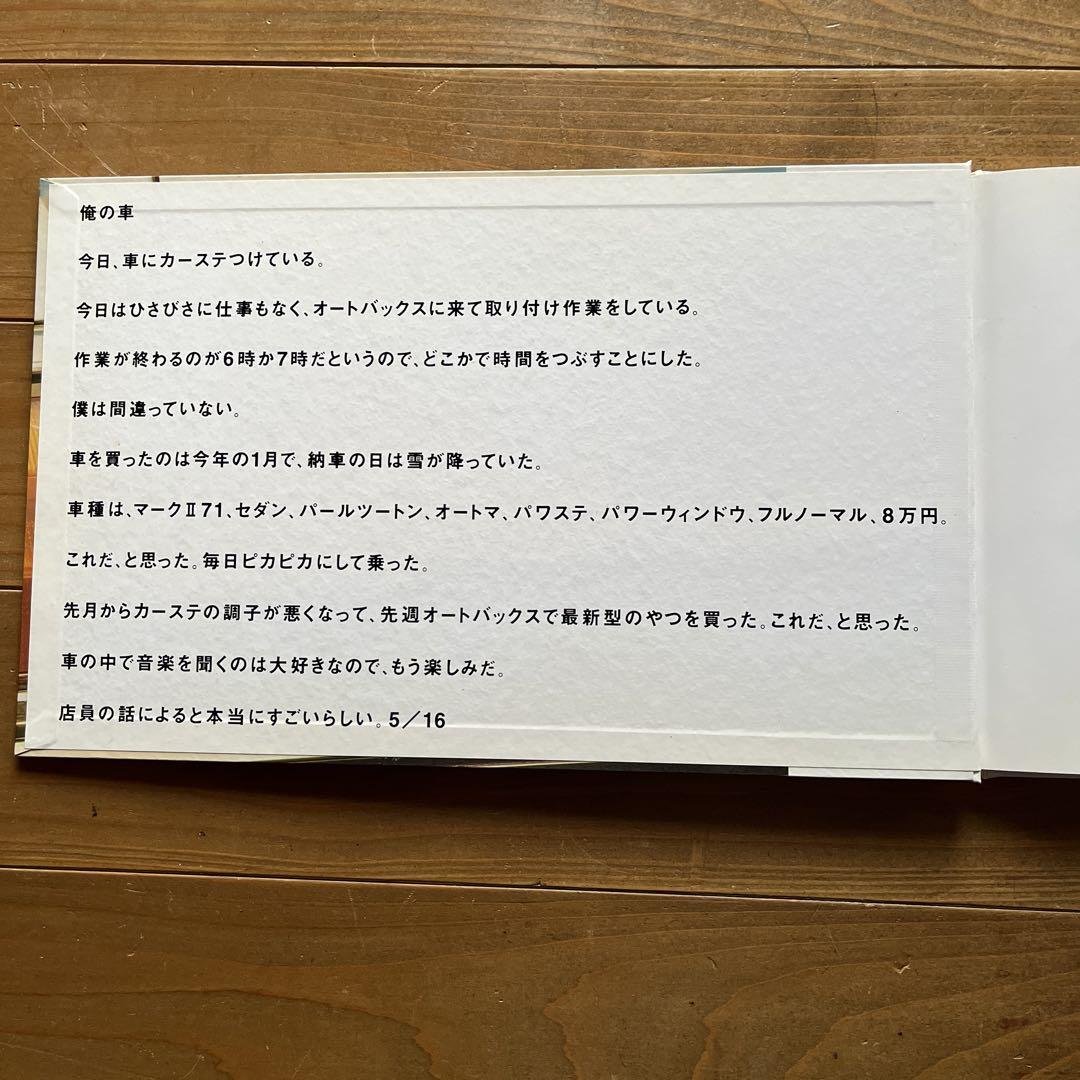 俺の車
今日、車にカーステつけている。
今日はひさびさに仕事もなく、オートバックスに来て取り付け作業をしている。
作業が終わるのが6時か7時だというので、どこかで時間をつぶすことにした。
僕は間違っていない。
車を買ったのは今年の1月で、納車の日は雪が降っていた。
車種は、マークⅡ71、セダン、パールツートン、オートマ、パワステ、パワーウィンドウ、フルノーマル、8万円。
これだ、と思った。毎日ピカピカにして乗った。
先月からカーステの調子が悪くなって、先週オートバックスで最新型のやつを買った。これだ、と思った。
車の中で音楽を聞くのは大好きなので、もう楽しみだ。
店員の話によると本当にすごいらしい。5／16